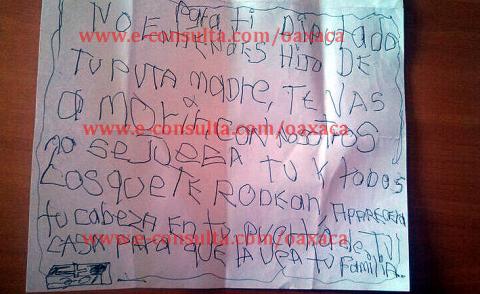 Para ti Diputado
www.e-consulta.com/oaxaca
NO ENTIENDES HIJO DE
TU PUTA MADRE, TE VAS
A MORIR, CON NOSOTROS
www.e-consulta.com/oaxaca
NO SE JUEGA TU Y todos
Los que TE RODEAN, APARECERA
www.e-consulta.com/oaxaca
tu CABEZA EN tu PUERTA de TU
www.e-consulta.com/oaxaca
CASA PARA QUE LA VEA tu FAMILIA